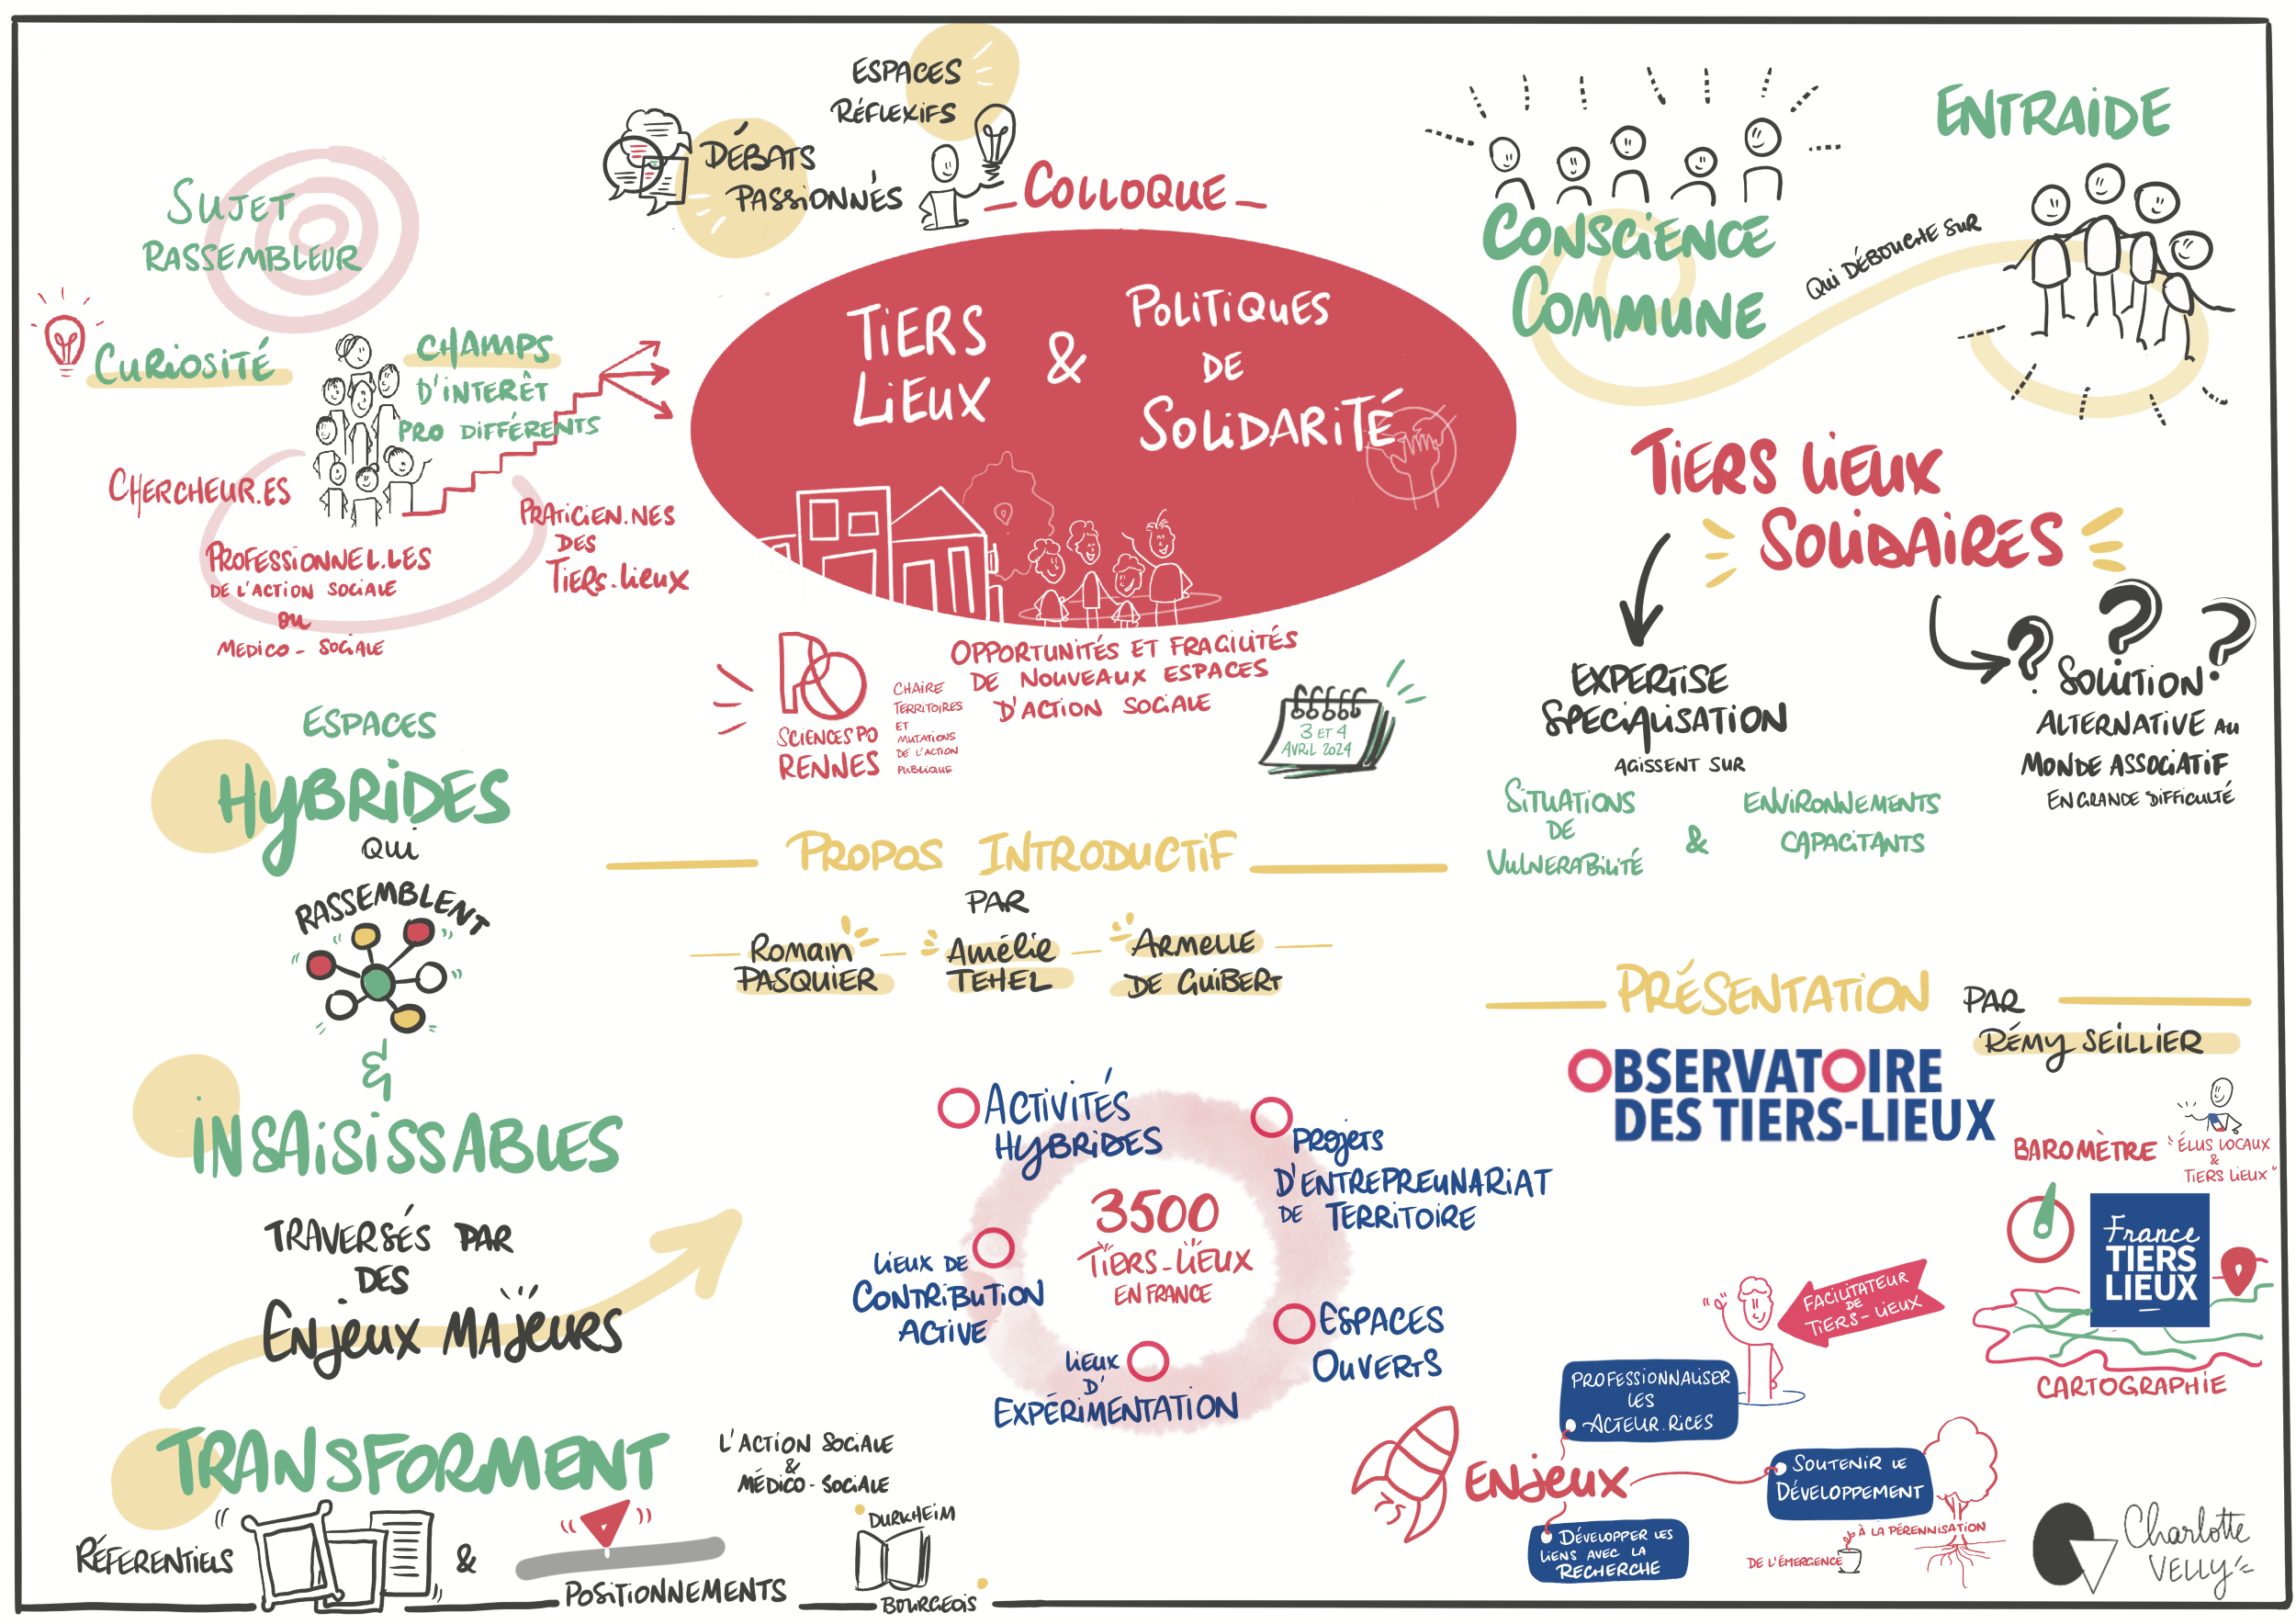 ESPACES
RÉFLEXIFS
DÉBATS
PASSIONNÉS
_COLLOQUE_
TIERS
LIEUX
&
POLITIQUES
DE
SOLIDARITÉ
SCIENCES PO
RENNES
CHAIRE
TERRITOIRES
ET
MUTATIONS
DE L'ACTION
PUBLIQUE
OPPORTUNITÉS ET FRAGILITÉS
DE NOUVEAUX ESPACES
D'ACTION SOCIALE
3 ET 4
AVRIL 2024
SUJET
RASSEMBLEUR
CURIOSITÉ
CHAMPS
D'INTERÊT
PRO DIFFÉRENTS
CHERCHEUR.ES
PROFESSIONNEL.LES
DE L'ACTION SOCIALE
OU
MEDICO-SOCIALE
PRATICIEN.NES
DES
TIERS-LIEUX
ESPACES
HYBRIDES
QUI
RASSEMBLENT
&
INSAISISSABLES
TRAVERSÉS PAR
DES
ENJEUX MAJEURS
TRANSFORMENT
L'ACTION SOCIALE
&
MÉDICO-SOCIALE
RÉFERENTIELS
&
POSITIONNEMENTS
DURKHEIM
BOURGEOIS
PROPOS INTRODUCTIF
PAR
ROMAIN
PASQUIER
AMÉLIE
TEHEL
ARMELLE
DE GUIBERT
ACTIVITÉS
HYBRIDES
PROJETS
D'ENTREPREUNARIAT
DE TERRITOIRE
3500
TIERS-LIEUX
EN FRANCE
LIEUX DE
CONTRIBUTION
ACTIVE
ESPACES
OUVERTS
LIEUX
D'
EXPÉRIMENTATION
CONSCIENCE
COMMUNE
QUI DÉBOUCHE SUR
ENTRAIDE
TIERS LIEUX
SOLIDAIRES
EXPERTISE
SPECIALISATION
AGISSENT SUR
SITUATIONS
DE
VULNERABILITÉ
&
ENVIRONNEMENTS
CAPACITANTS
? ? ?
SOLUTION
ALTERNATIVE AU
MONDE ASSOCIATIF
EN GRANDE DIFFICULTÉ
PRÉSENTATION PAR
RÉMY SEILLIER
OBSERVATOIRE
DES TIERS-LIEUX
BAROMÈTRE
"ÉLUS LOCAUX
&
TIERS LIEUX"
France
TIERS
LIEUX
CARTOGRAPHIE
FACILITATEUR
DE
TIERS-LIEUX
PROFESSIONNALISER
LES
ACTEUR.RICES
ENJEUX
SOUTENIR LE
DÉVELOPPEMENT
DE L'ÉMERGENCE
À LA PÉRENNISATION
DÉVELOPPER LES
LIENS AVEC LA
RECHERCHE
Charlotte
VELLY